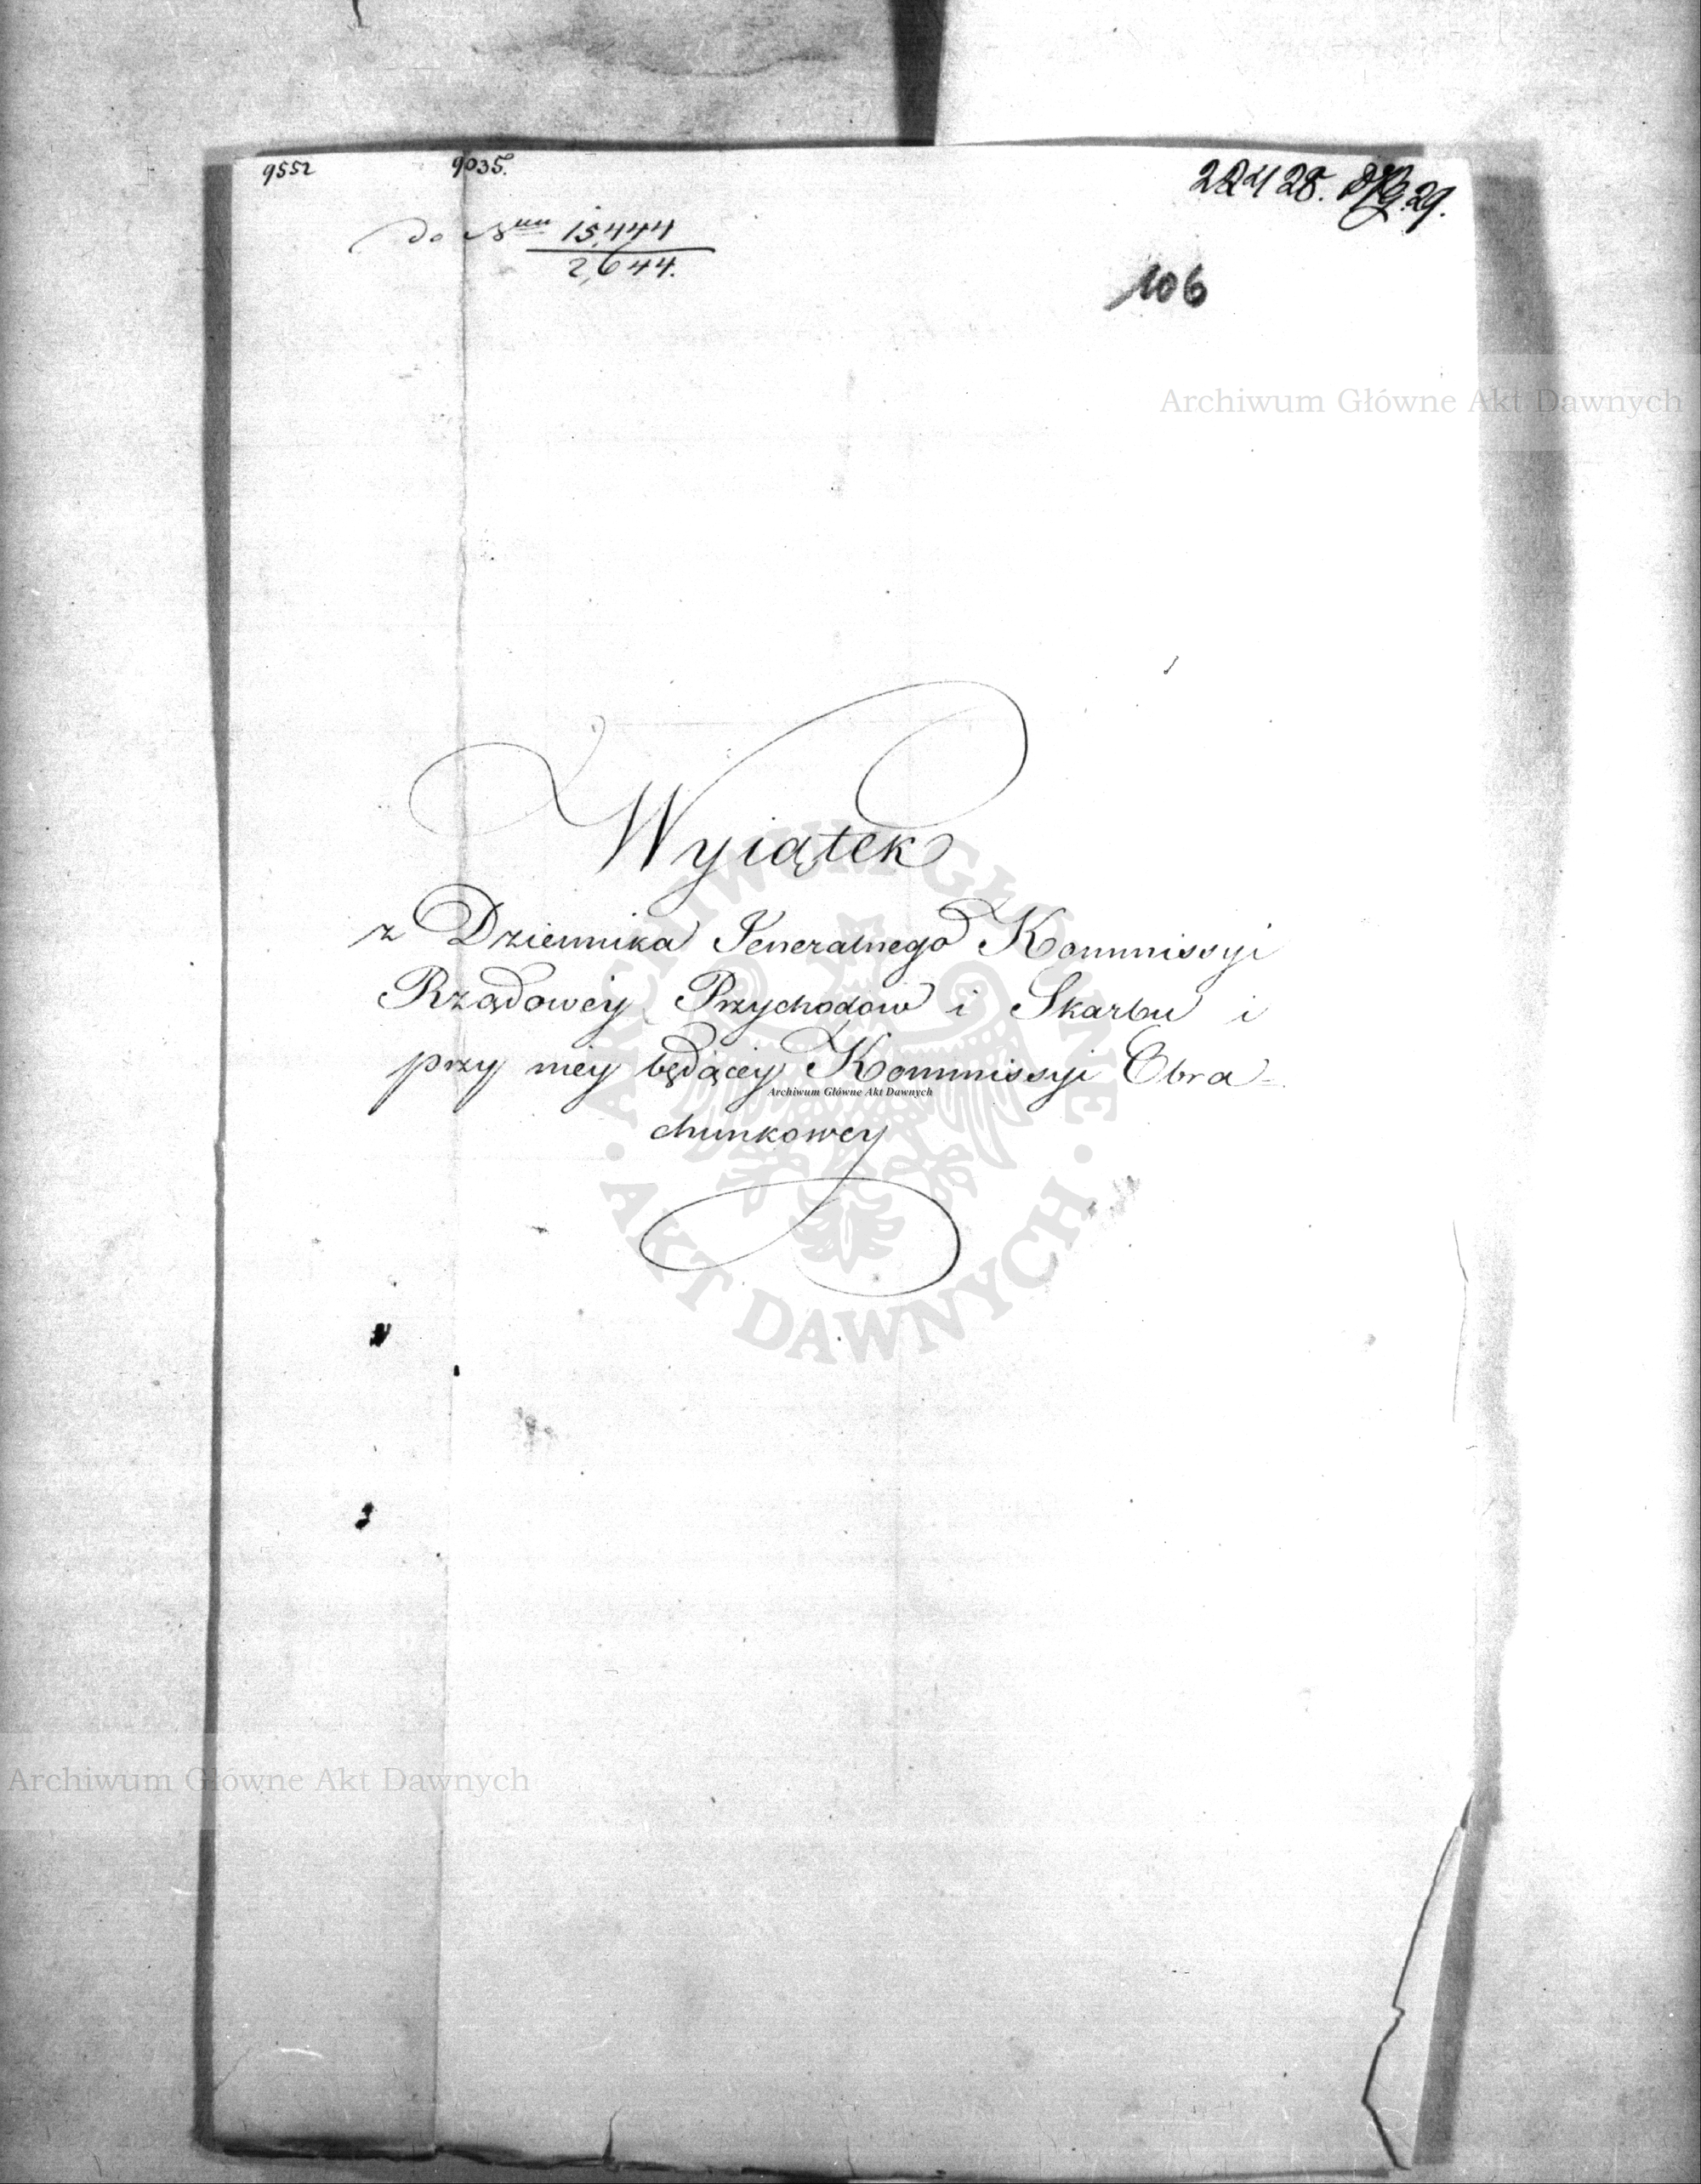 9552 9035. 22428. 29.
do N<sup>ru</sup> 15,444
2,644.
106
Archiwum Główne Akt Dawnych
Wyiątek
z Dziennika Jeneralnego Kommissyi
Rządowey Przychodów i Skarbu i
przy niey będącey Kommissyi Obra-
Archiwum Główne Akt Dawnych
chunkowey
ARCHIWUM GŁÓWNE · AKT DAWNYCH ·
Archiwum Główne Akt Dawnych